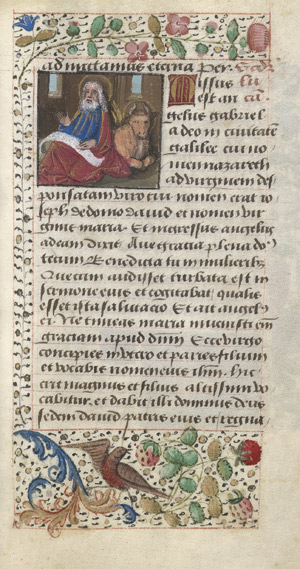 ad nuctamus eterna per
issus
est an
gelus gabriel
a deo in ciuitatem
galilee cui no
men nazareth
ad virginem des
ponsatam viro cui nomen erat io
seph de domo dauid et nomen vir
ginis maria Et ingressus angelus
ad eam dixit Aue gratia plena do
tecum Benedicta tu in mulieribz
Que cum audisset turbata est in
sermone eius et cogitabat qualis
esset ista salutacio Et ait angels
ei Ne timeas maria inuenisti em
graciam apud dnm Ecce
concipies in vtero et paries filium
et vocabis nomen eius ihm hic
erit magnus et filius altissimi vo
cabitur et dabit illi dominus deus
sedem dauid patris eius et regna